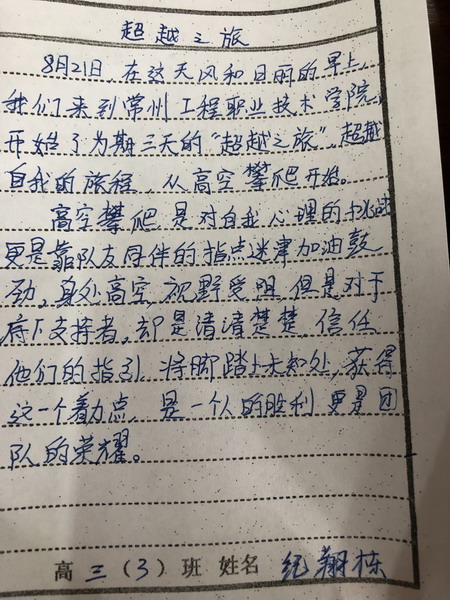 超越之旅
8月21日,在这天风和日丽的早上,
我们来到常州工程职业技术学院,
开始了为期三天的“超越之旅”,超越
自我的旅程,从高空攀爬开始。
高空攀爬,是对自我心理的挑战
更是靠队友同伴的指点迷津加油鼓
劲,身处高空,视野受阻,但是对于
底下支持者,却是清清楚楚,信任
他们的指引,将脚踏上未知处,获得
这一个着力点,是一个人的胜利,更是团
队的荣耀。
高三(3)班 姓名 纪翔栋